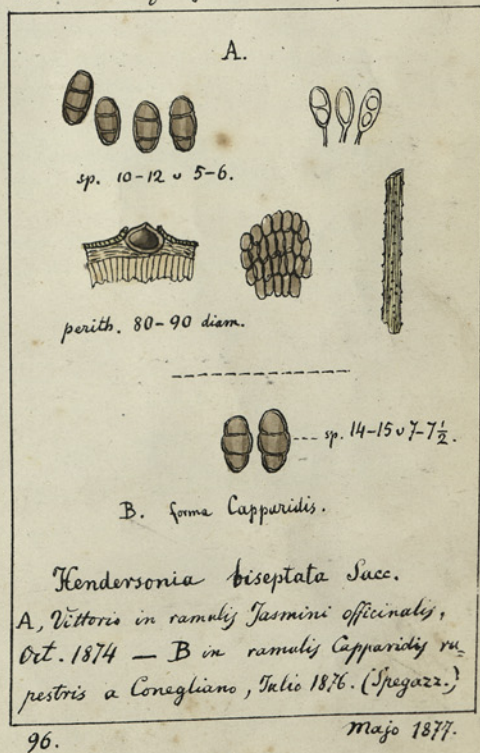 A.
sp. 10-12 ᴗ 5-6.
perith. 80-90 diam.
sp. 14-15 ᴗ 7-7½.
B. forma Capparidis.
Hendersonia biseptata Sacc.
A, Vittorio in ramulis Jasmini officinalis,
Oct. 1874 — B in ramulis Capparidis ru=
pestris a Conegliano, Julio 1876. (Spegazz.)
96.
Majo 1877.